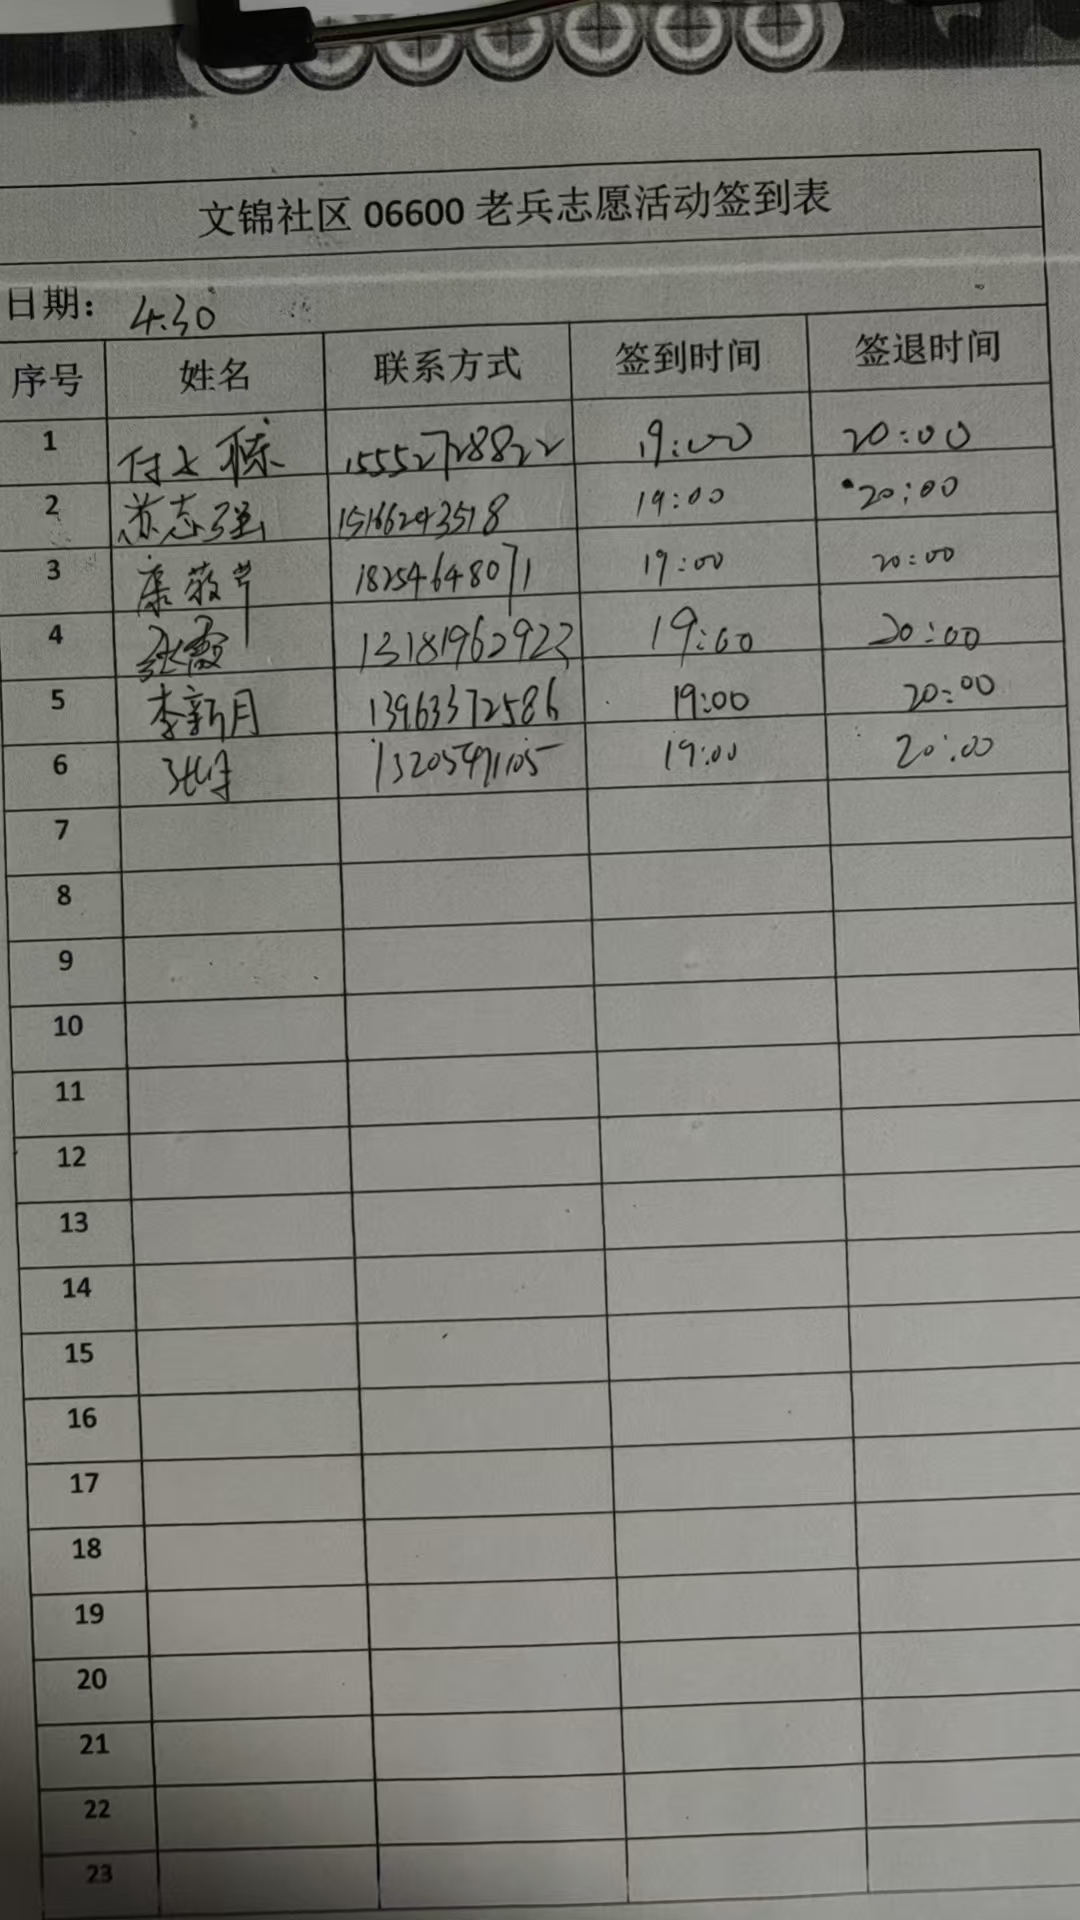 文锦社区 06600 老兵志愿活动签到表
日期： 4.30
序号 姓名 联系方式 签到时间 签退时间
1 付 15552728822 19:00 20:00
2 苏志强 15166293518 19:00 20:00
3 康 18254648071 19:00 20:00
4 张霞 13181962923 19:00 20:00
5 李新月 13963372586 19:00 20:00
6 13205471105 19:00 20:00
7
8
9
10
11
12
13
14
15
16
17
18
19
20
21
22
23